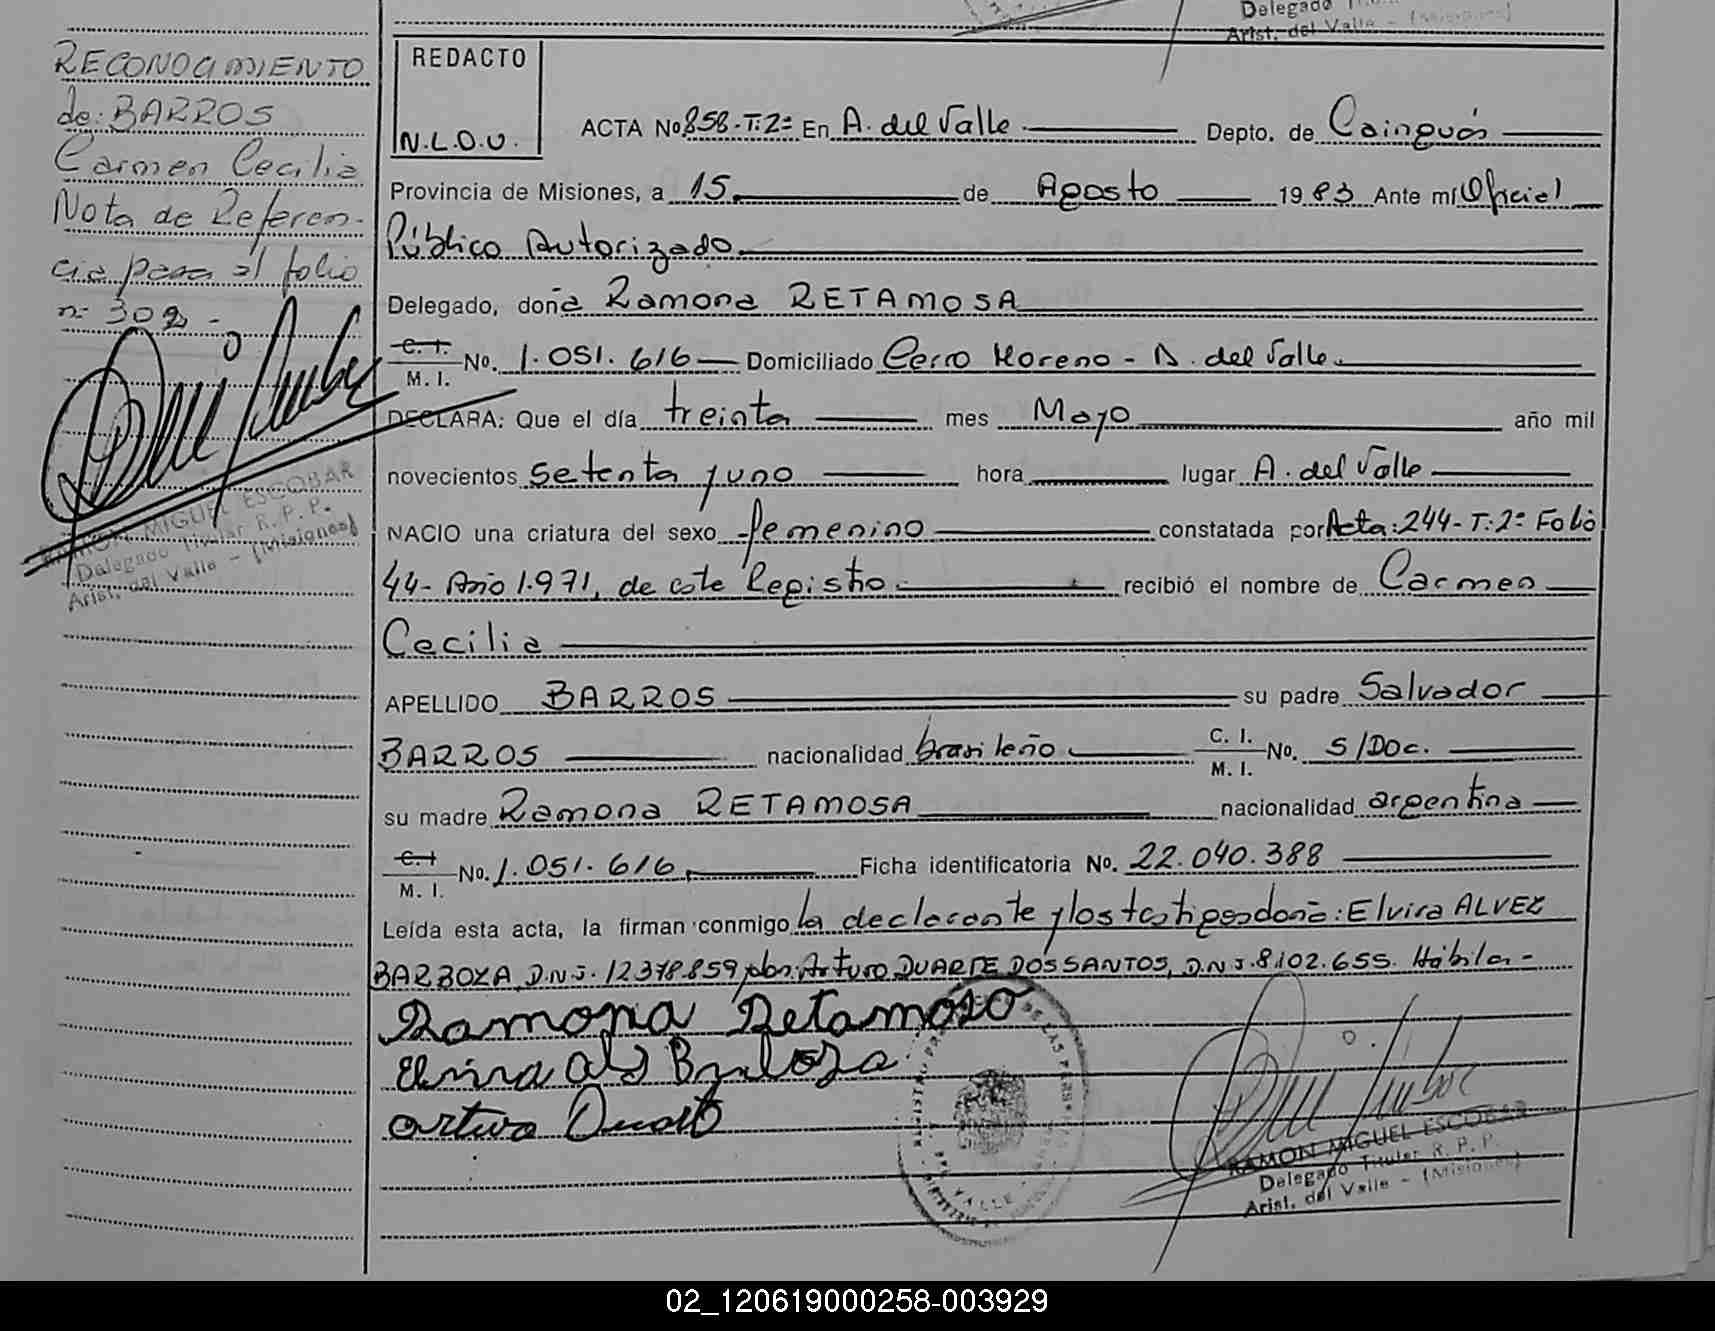 Delegado
Arist. del Valle - (Misiones)
RECONOCIMIENTO
de: BARROS
Carmen Cecilia
Nota de Referen-
cia pasa al folio
nº 302 -
RAMON MIGUEL ESCOBAR
Delegado Titular R. P. P.
Arist. del Valle - (Misiones)
REDACTO
N.L.O.V.
ACTA No 858-T:2º En A. del Valle Depto. de Cainguás
Provincia de Misiones, a 15 de Agosto 1983 Ante mí Oficial
Público Autorizado
Delegado, doña Ramona RETAMOSA
C. I. M. I. No. 1.051.616 Domiciliado Cerro Moreno - A. del Valle
DECLARA: Que el día treinta mes Mayo año mil
novecientos setenta y uno hora lugar A. del Valle
NACIO una criatura del sexo femenino constatada por Acta: 244-T:2º Folio
44- Año 1.971, de este Registro recibió el nombre de Carmen
Cecilia
APELLIDO BARROS su padre Salvador
BARROS nacionalidad brasileño C. I. M. I. No. S/Doc.
su madre Ramona RETAMOSA nacionalidad argentina
C. I. M. I. No. 1.051.616 Ficha identificatoria No. 22.040.388
Leída esta acta, la firman conmigo la declarante y los testigos doña: Elvira ALVEZ
BARBOZA, D.N.I. 12.378.859 y don: Arturo DUARTE DOS SANTOS, D.N.I. 8.102.655. Hábiles-
Ramona Retamoso
Elvira Barboza
Arturo
DE LAS PERS
VALLE
RAMON MIGUEL ESCOBAR
Delegado Titular R. P. P.
Arist. del Valle - (Misiones)
02_120619000258-003929